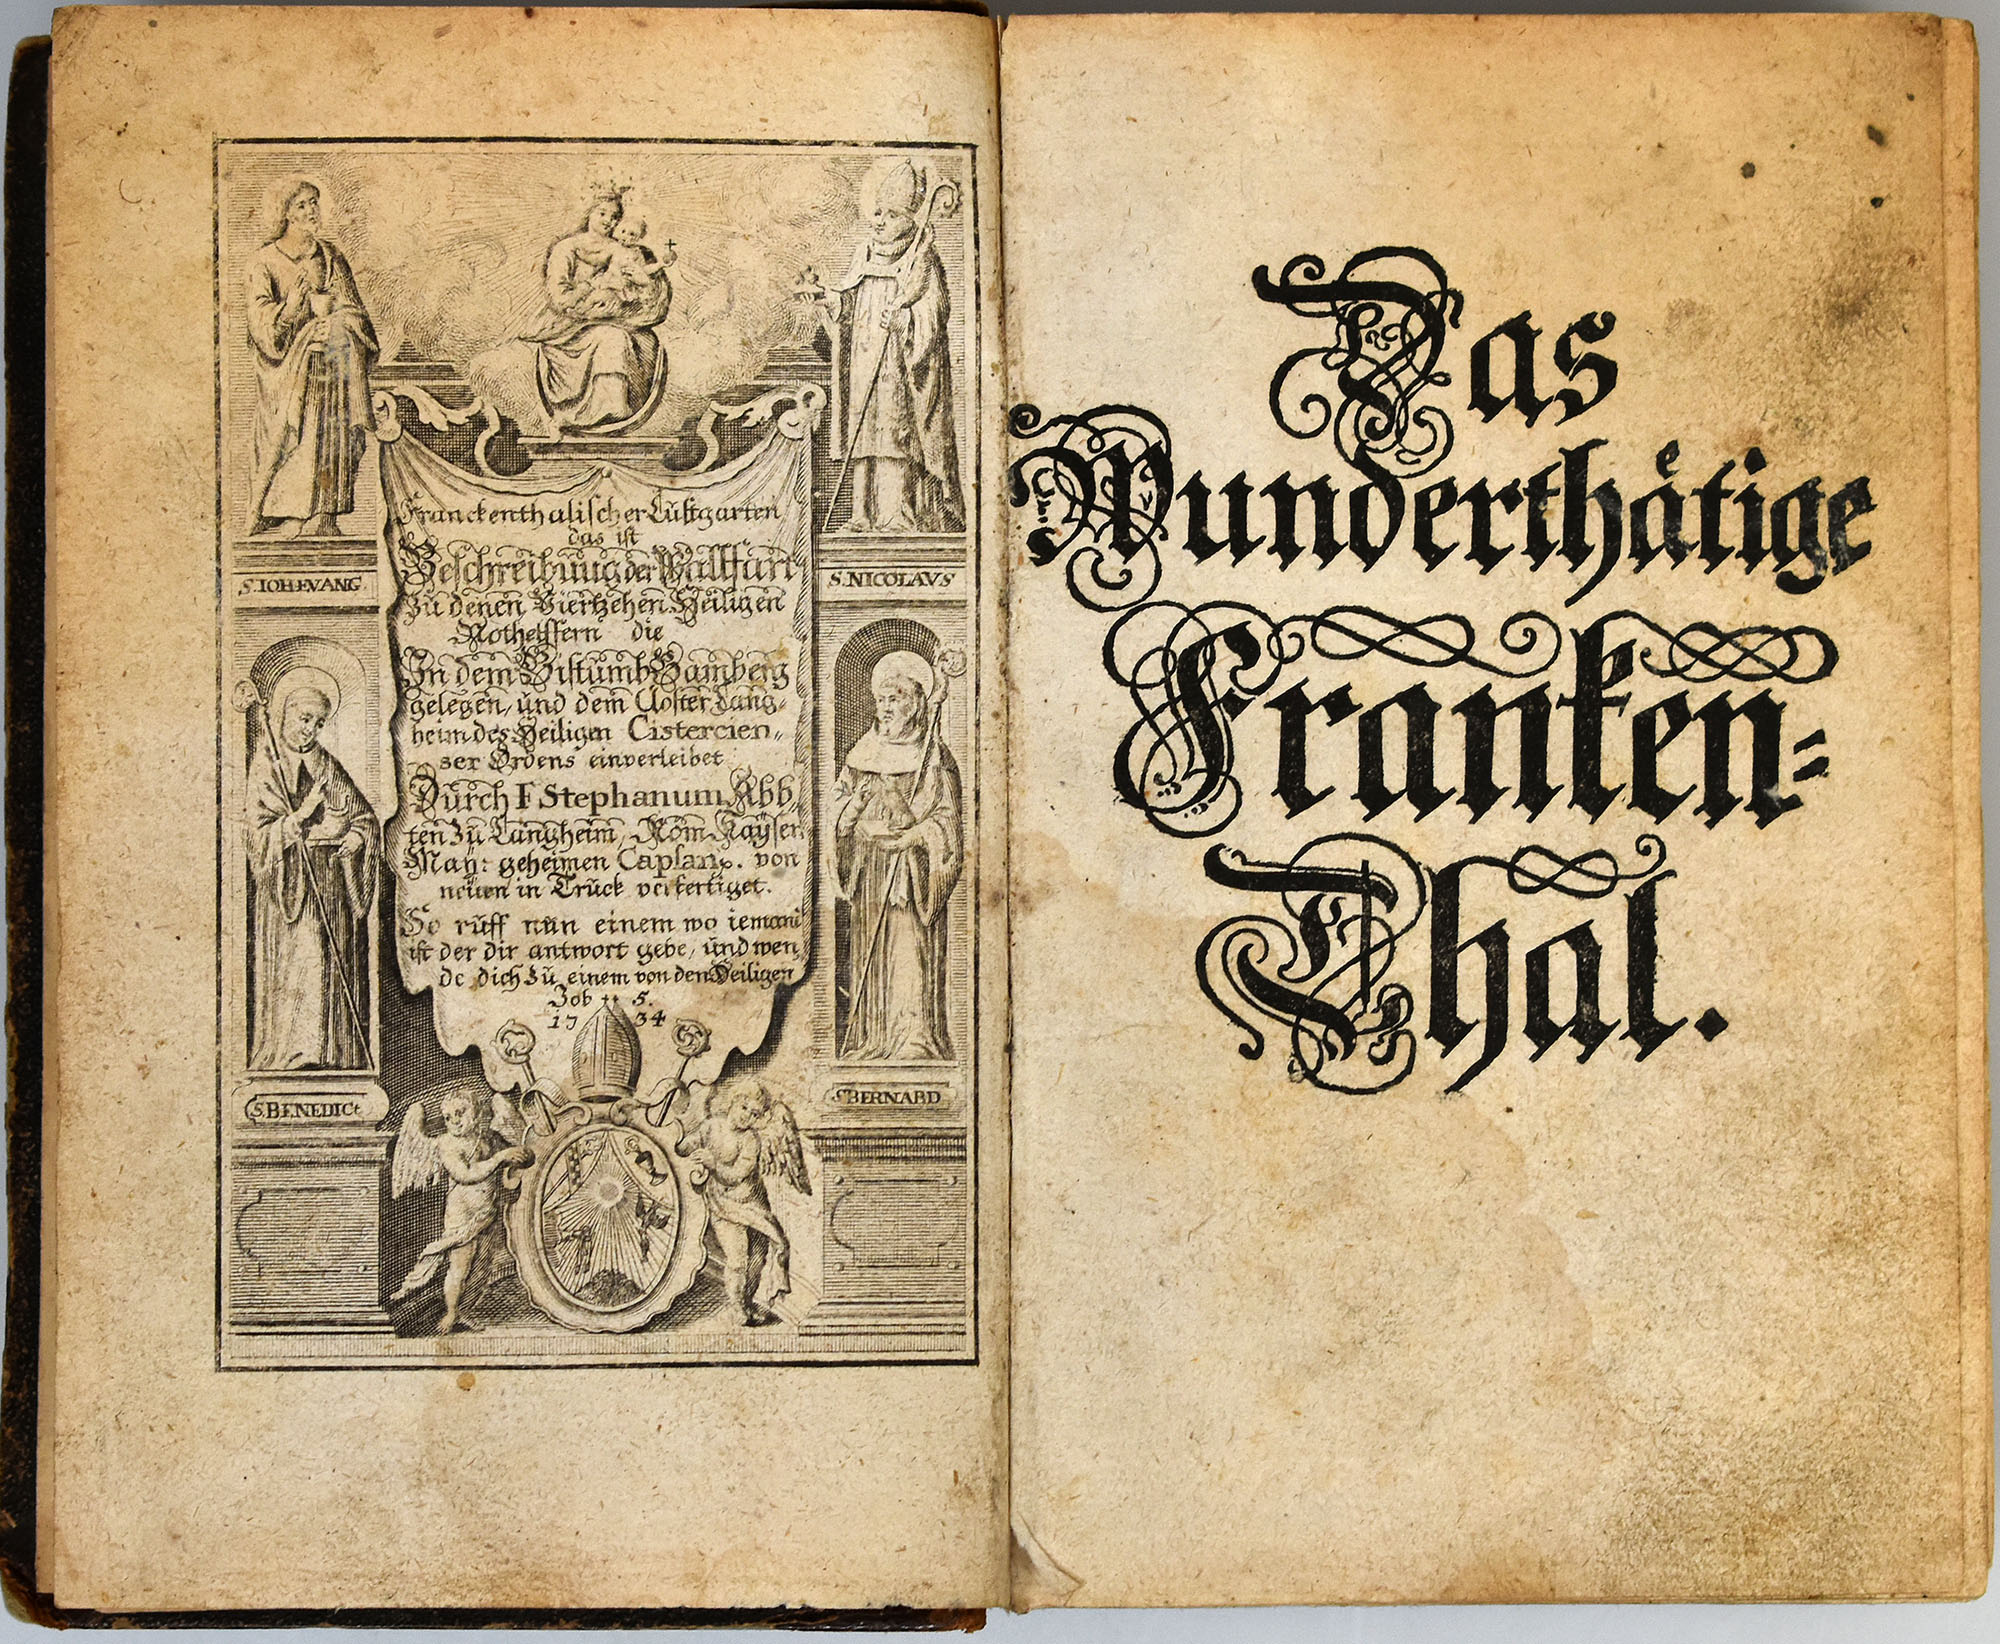 Franckenthalischer Lustgarten
das ist
Beschreibung der Wallfart
Zu denen Viertzehen Heiligen
Nothelffern die
In dem Bistumb Bamberg
gelegen, und dem Closter Lang-
heim des Heiligen Cistercien-
ser Ordens einverleibet
Durch F Stephanum Abb-
ten Zu Langheim, Röm Kayser
May: geheimen Caplan. von
neuen in Truck verfertiget.
So ruff nun einem wo iemand
ist der dir antwort gebe, und wen-
de dich Zu einem von den Heiligen
Job 5.
17 34
S. IOH. EVANG.
S. NICOLAVS
S. BENEDICt
S BERNARD
Das
Wunderthätige
Franken-
Thal.